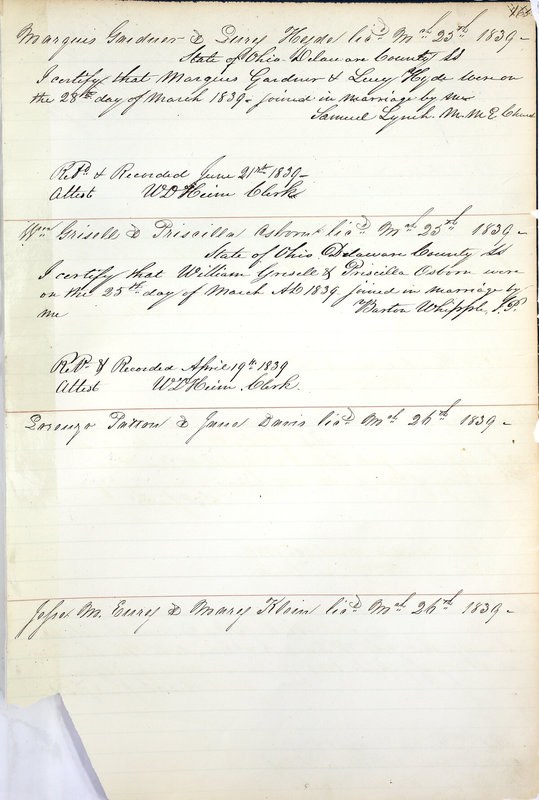 Marquis Gardner & Lucy Hyde lic'd Mch 25th 1839 -
State of Ohio Delaware County SS
I certify that Marquis Gardner & Lucy Hyde were on
the 28th day of March 1839 - joined in marriage by me
Samuel Lynch. M. M E Church
Retd & Recorded June 21st 1839 -
Attest W D Heim Clerk
Wm Grisell & Priscilla Osborn lic'd Mch 25th 1839 -
State of Ohio Delaware County SS
I certify that William Grisell & Priscilla Osborn were
on the 25th day of March AD 1839 joined in marriage by
me Barton Whipple, J.P.
Retd & Recorded April 19th 1839
Attest W D Heim Clerk.
Lorenzo Patton & Jane Davis lic'd Mch 26th 1839 -
Jesse M. Eury & Mary Klein lic'd Mch 26th 1839 -